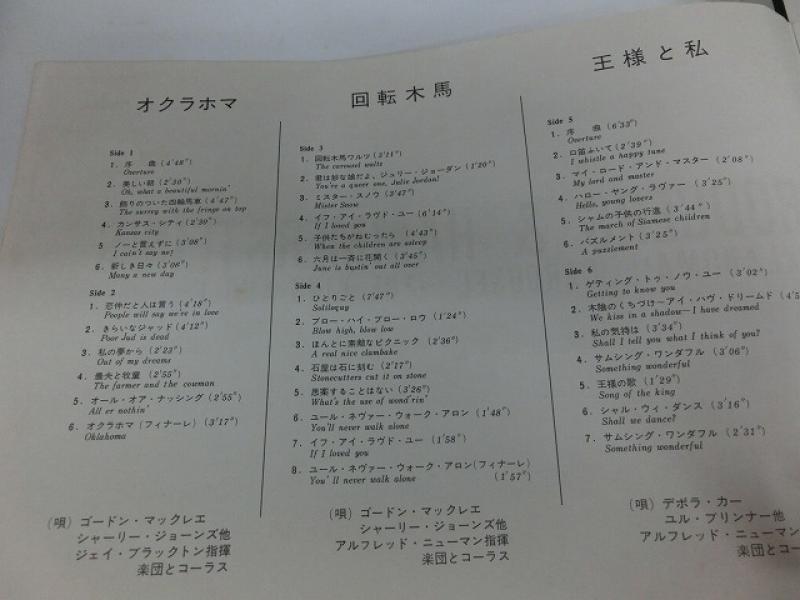 オクラホマ
Side 1
1. 序 曲 (4′48″)
Overture
2. 美しい朝 (2′30″)
Oh, what a beautiful mornin'
3. 飾りのついた四輪馬車 (4′47″)
The surrey with the fringe on top
4. カンサス・シティ (2′39″)
Kansas city
5. ノーと言えずに (3′08″)
I cain't say no!
6. 新しき日々 (3′06″)
Many a new day
Side 2
1. 恋仲だと人は言う (4′18″)
People will say we're in love
2. きらいなジャッド (4′12″)
Poor Jud is dead
3. 私の夢から (2′23″)
Out of my dreams
4. 農夫と牧童 (2′55″)
The farmer and the cowman
5. オール・オア・ナッシング (2′55″)
All er nothin'
6. オクラホマ (フィナーレ) (3′17″)
Oklahoma
(唄) ゴードン・マックレエ
シャーリー・ジョーンズ他
ジェイ・ブラックトン指揮
楽団とコーラス
回転木馬
Side 3
1. 回転木馬ワルツ (3′21″)
The carousel waltz
2. 君は妙な娘だよ、ジュリー・ジョーダン (1′20″)
You're a queer one, Julie Jordan!
3. ミスター・スノウ (3′47″)
Mister Snow
4. イフ・アイ・ラヴド・ユー (6′14″)
If I loved you
5. 子供たちがねむったら (4′43″)
When the children are asleep
6. 六月は一斉に花開く (3′45″)
June is bustin' out all over
Side 4
1. ひとりごと (7′47″)
Soliloquy
2. ブロー・ハイ・ブロー・ロウ (1′24″)
Blow high, blow low
3. ほんとに素敵なピクニック (2′36″)
A real nice clambake
4. 石屋は石に刻む (2′17″)
Stonecutters cut it on stone
5. 思案することはない (3′26″)
What's the use of wond'rin'
6. ユール・ネヴァー・ウォーク・アロン (1′48″)
You'll never walk alone
7. イフ・アイ・ラヴド・ユー (1′58″)
If I loved you
8. ユール・ネヴァー・ウォーク・アロン (フィナーレ)
You'll never walk alone (1′57″)
(唄) ゴードン・マックレエ
シャーリー・ジョーンズ他
アルフレッド・ニューマン指揮
楽団とコーラス
王様と私
Side 5
1. 序 曲 (6′33″)
Overture
2. 口笛ふいて (2′39″)
I whistle a happy tune
3. マイ・ロード・アンド・マスター (2′08″)
My lord and master
4. ハロー・ヤング・ラヴァー (3′25″)
Hello, young lovers
5. シャムの子供の行進 (3′44″)
The march of Siamese children
6. パズルメント (3′25″)
A puzzlement
Side 6
1. ゲティング・トゥ・ノウ・ユー (3′02″)
Getting to know you
2. 木陰のくちづけ〜アイ・ハヴ・ドリームド (4′5
We kiss in a shadow—I have dreamed
3. 私の気持は (3′34″)
Shall I tell you what I think of you?
4. サムシング・ワンダフル (3′06″)
Something wonderful
5. 王様の歌 (1′29″)
Song of the king
6. シャル・ウィ・ダンス (3′16″)
Shall we dance?
7. サムシング・ワンダフル (2′31″)
Something wonderful
(唄) デボラ・カー
ユル・ブリンナー他
アルフレッド・ニューマン
楽団とコー